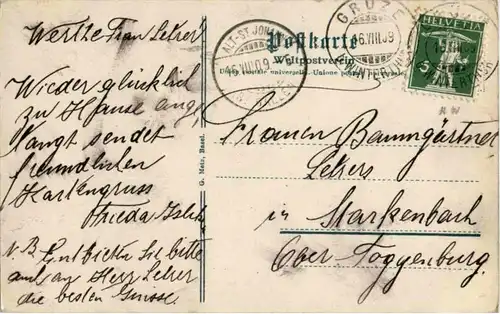 Werthe Frau Lehrer
Wieder glücklich
zu Hause ange
langt sendet
freundlichen
Kartengruss
Frieda
N.B. Entbieten Sie bitte
auch an Herr Lehrer
die besten Grüsse
Postkarte
Weltpostverein
Union postale universelle. Unione postale
G. Metz, Basel.
ALT-ST.JOHANN
16.VIII.09
GRÜZE
16.VIII.09
WINTERTHUR
HELVETIA
5
Frauen Baumgärtner
Lehrers
in Starkenbach
Ober Toggenburg.